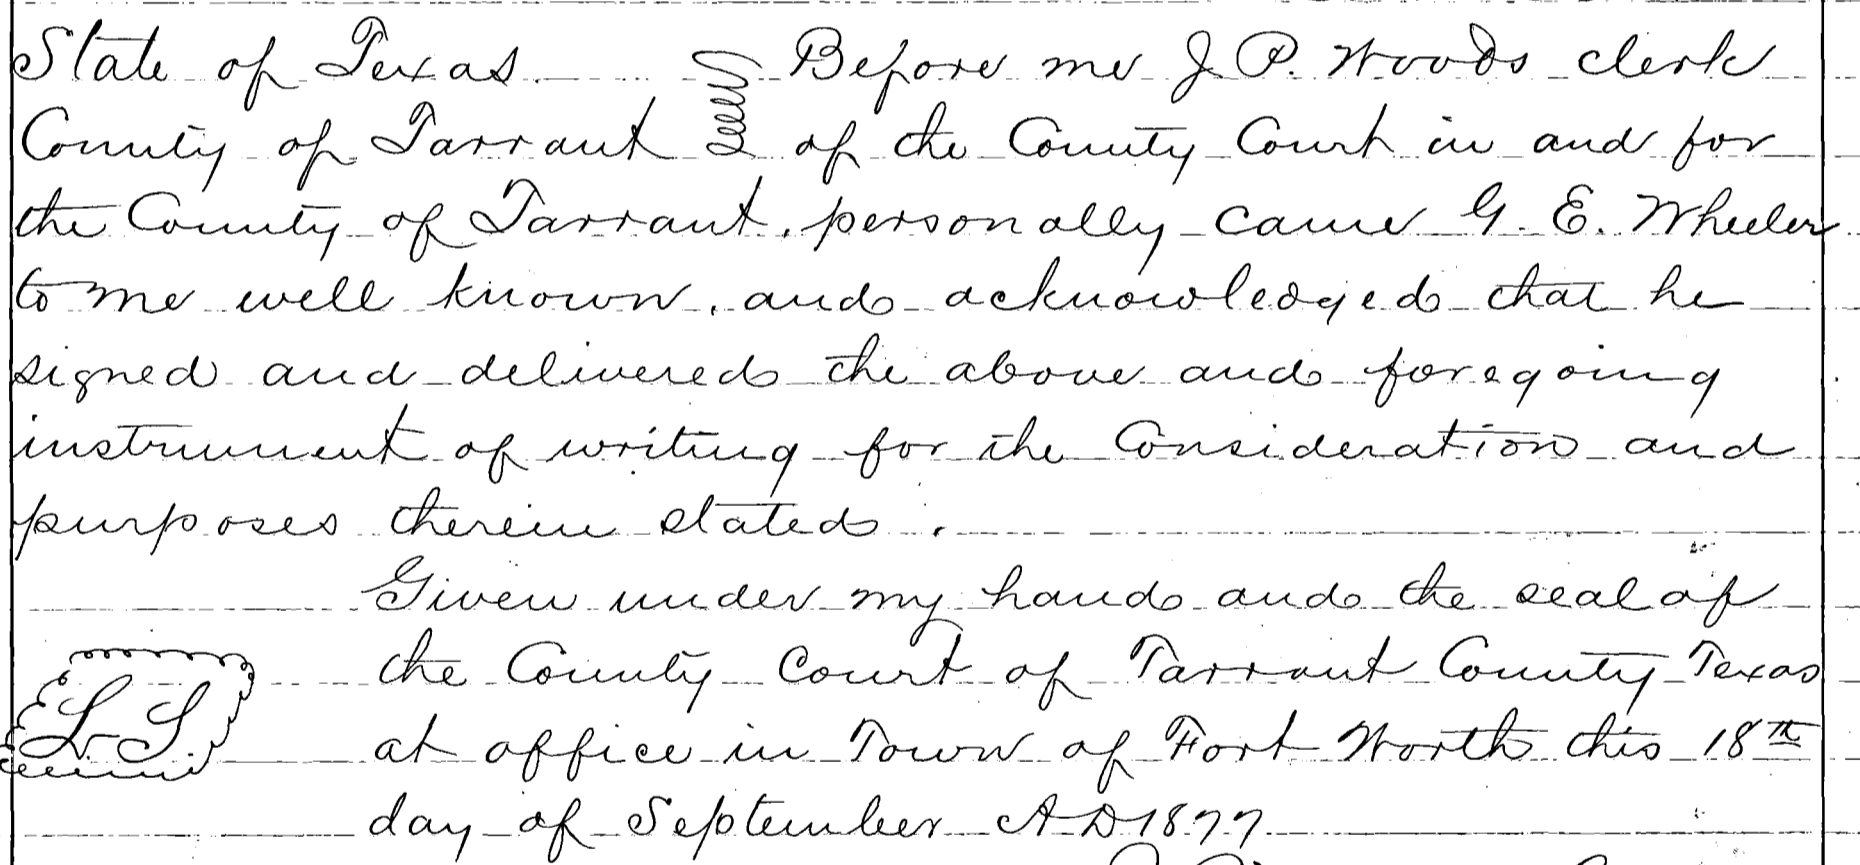 State of Texas Before me J. P. Woods clerk
County of Tarrant of the County Court in and for
the County of Tarrant, personally came G. E. Wheeler
to me well known, and acknowledged that he
signed and delivered the above and foregoing
instrument of writing for the Consideration and
purposes therein stated.
Given under my hand and the seal of
the County Court of Tarrant County Texas
L. S. at office in Town of Fort Worth this 18th
day of September A D 1877